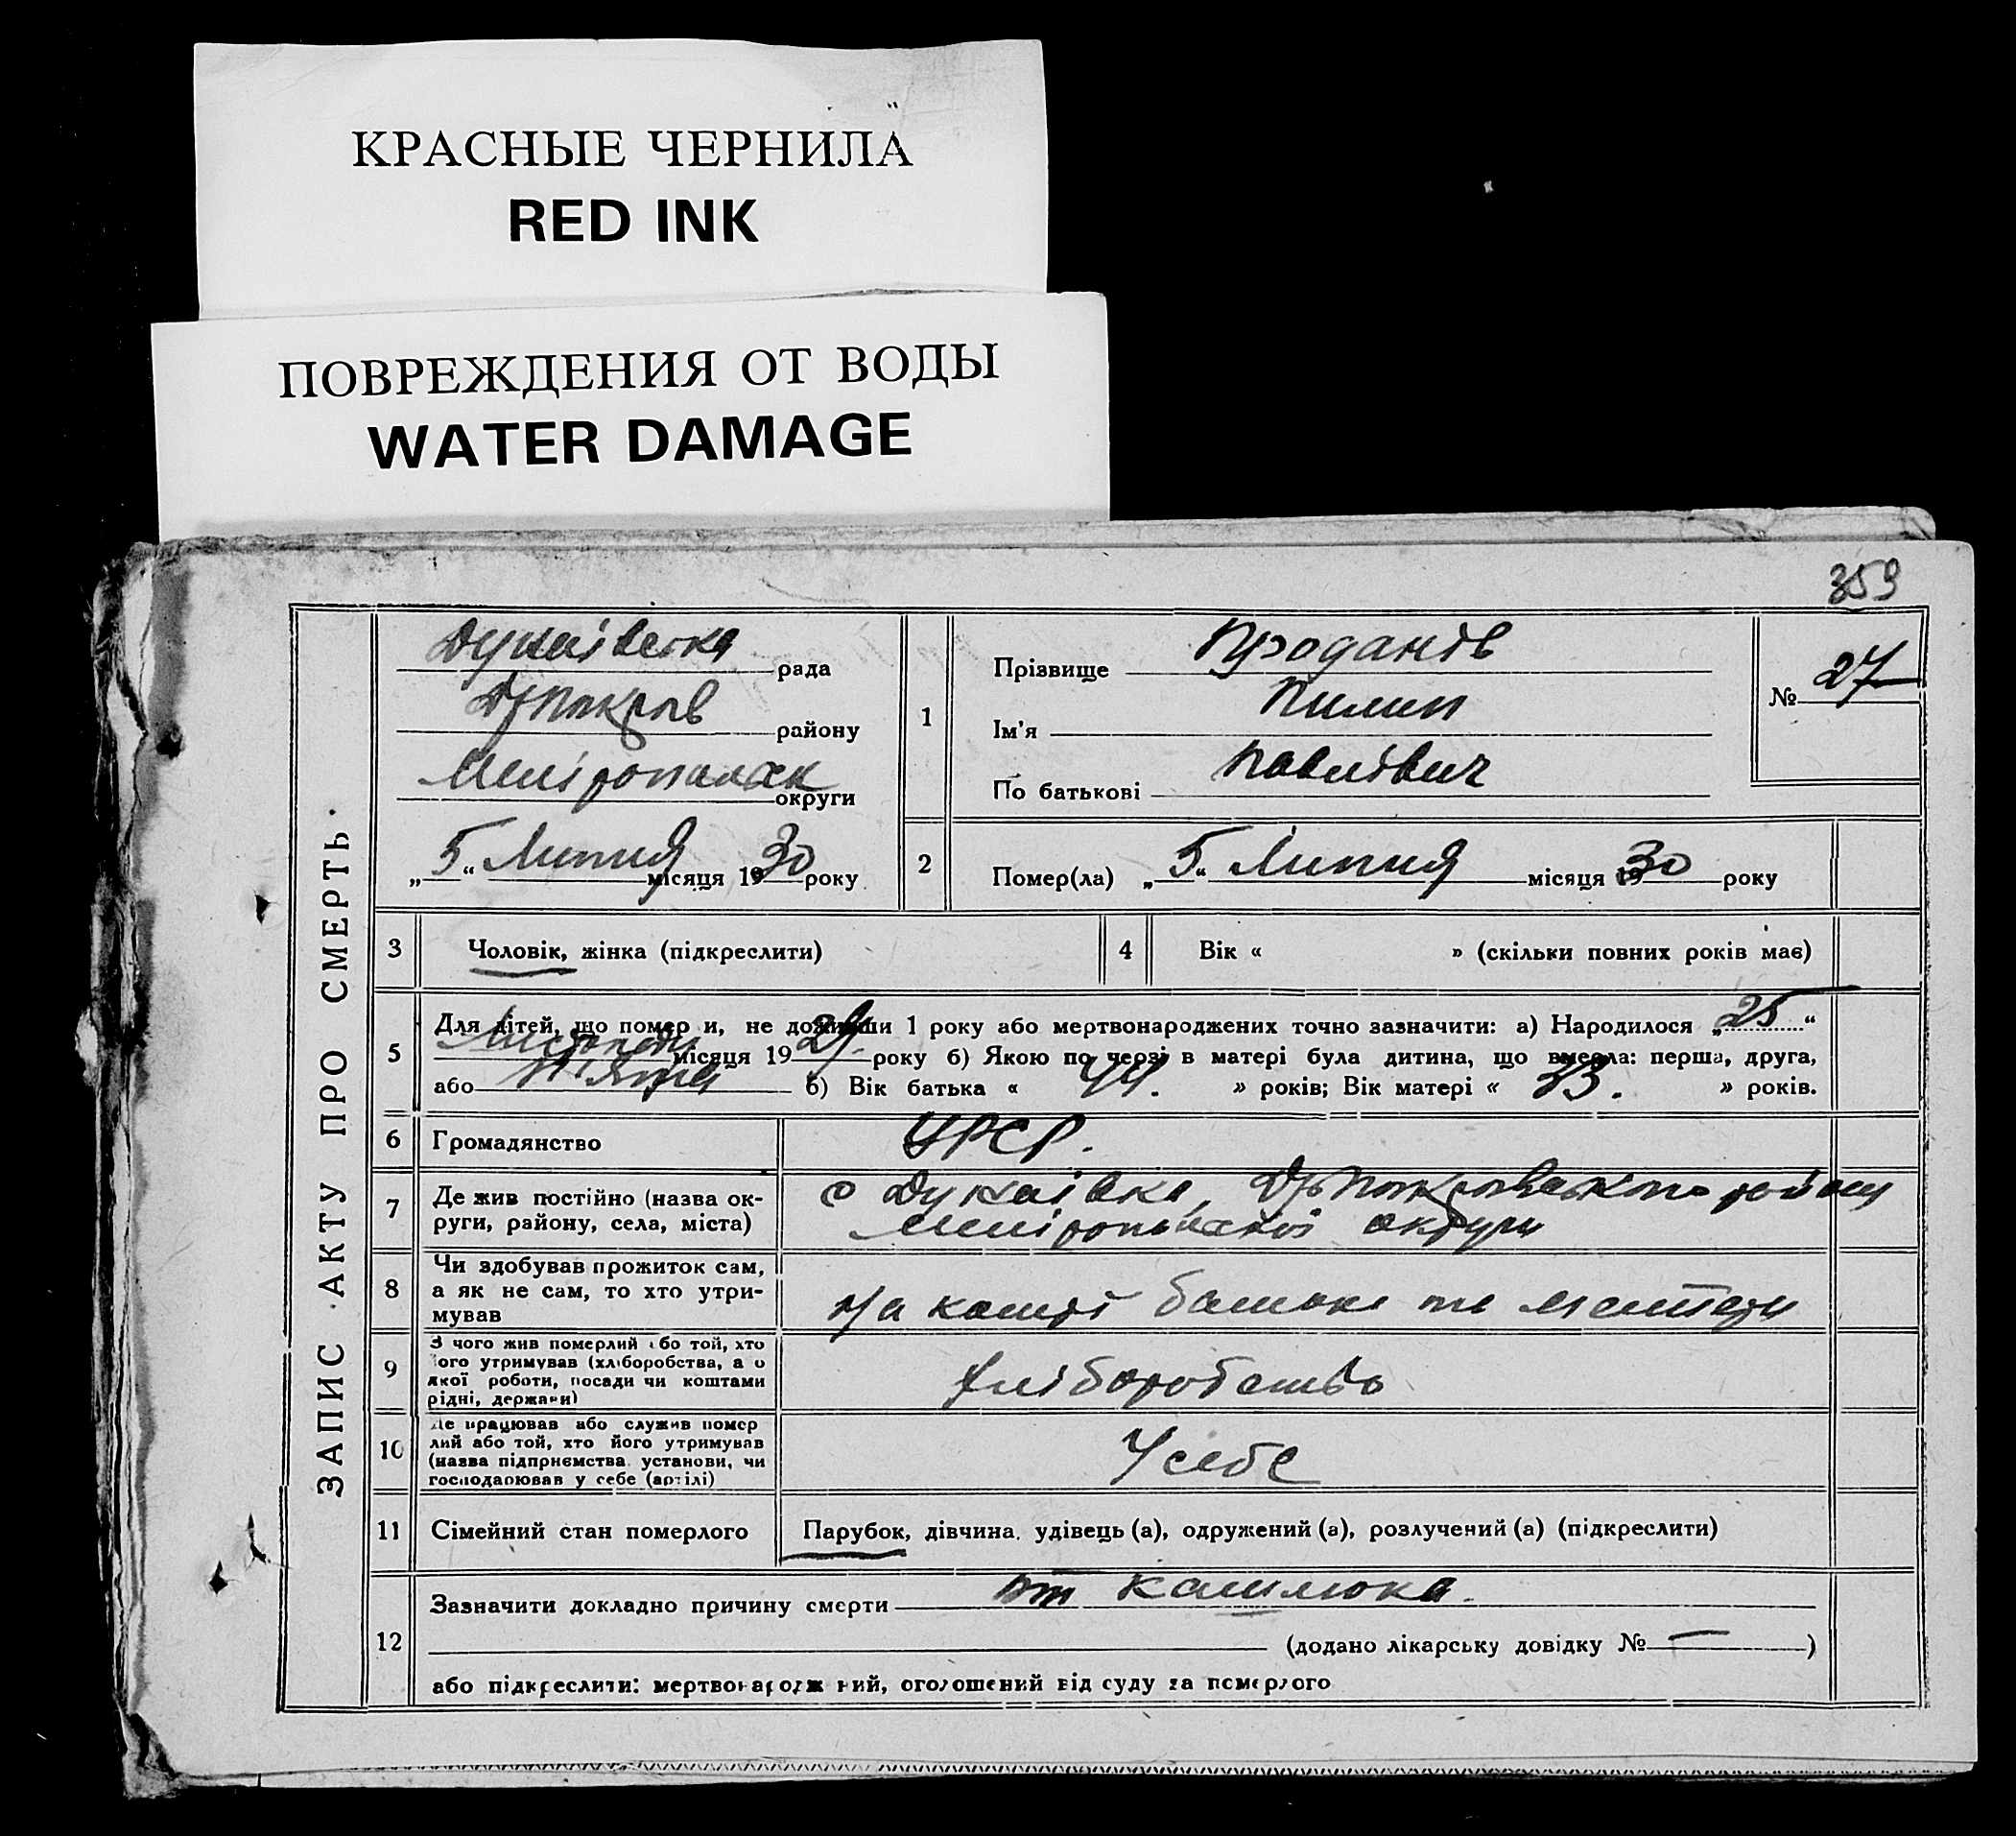 КРАСНЫЕ ЧЕРНИЛА
RED INK
ПОВРЕЖДЕНИЯ ОТ ВОДЫ
WATER DAMAGE
359
ЗАПИС АКТУ ПРО СМЕРТЬ.
Дунаївська рада
района
округи
„5“ Липня місяця 1930 року
1
Прізвище Проданов
Ім'я Пилип
По батькові Павлівич
№ 27
2
Помер(ла) „5“ Липня місяця 1930 року
3 Чоловік, жінка (підкреслити)
4 Вік « » (скільки повних років має)
5 Для дітей, що помер и, не доживши 1 року або мертвонароджених точно зазначити: а) Народилося „25“
Листопада місяця 1929 року б) Якою по черзі в матері була дитина, що вмерла: перша, друга,
або п'ята б) Вік батька « 44. » років; Вік матері « 33. » років.
6 Громадянство УРСР.
7 Де жив постійно (назва ок-
руги, району, села, міста)
с Дунаівка, Покровського району
округи
8 Чи здобував прожиток сам,
а як не сам, то хто утри-
мував
На кошті батька та матери
9 З чого жив померлий або той, хто
його утримував (хліборобства, а о
якої роботи, посади чи коштами
рідні, держави)
Хліборобство
10 Де працював або служив помер
лий або той, хто його утримував
(назва підприємства установи, чи
господарював у себе (артілі)
У себе
11 Сімейний стан померлого
Парубок, дівчина, удівець (а), одружений (а), розлучений (а) (підкреслити)
12 Зазначити докладно причину смерти от кашлюка.
(додано лікарську довідку № — )
або підкреслити: мертвонародж ний, оголошений від суду за померлого